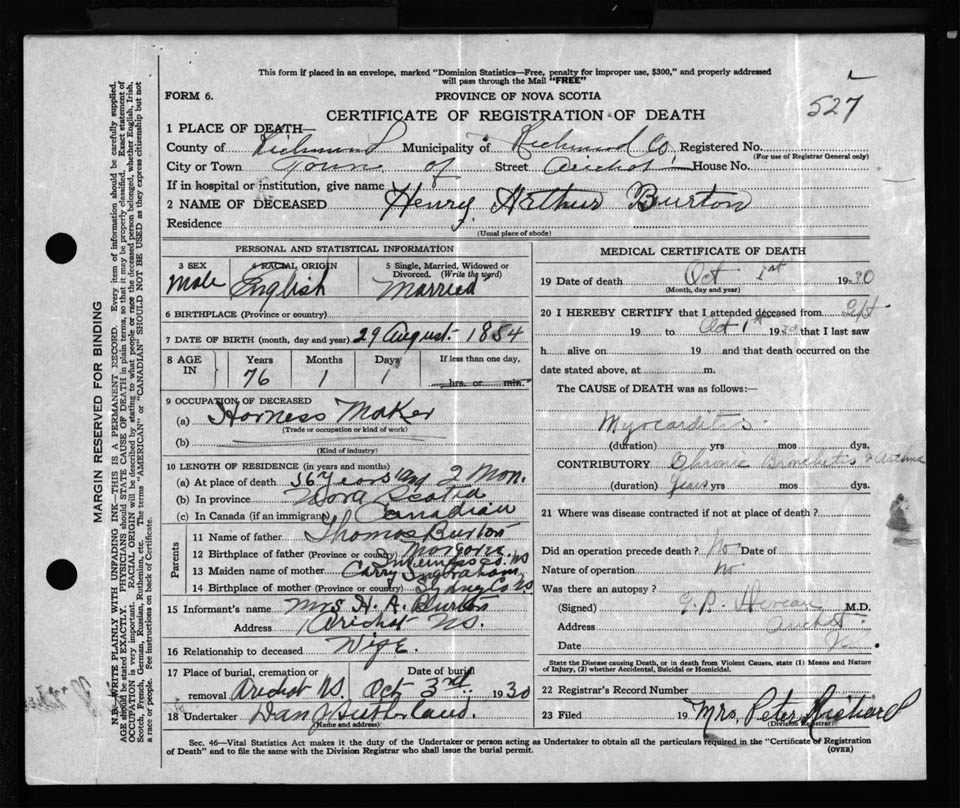 This form if placed in an envelope, marked "Dominion Statistics—Free, penalty for improper use, $300," and properly addressed
will pass through the Mail "FREE"
FORM 6.
PROVINCE OF NOVA SCOTIA
527
CERTIFICATE OF REGISTRATION OF DEATH
1 PLACE OF DEATH—
County of Richmond Municipality of Richmond Co Registered No.
(For use of Registrar General only)
City or Town Town of Street Arichat House No.
If in hospital or institution, give name
2 NAME OF DECEASED Henry Arthur Burton
Residence
(Usual place of abode)
PERSONAL AND STATISTICAL INFORMATION
3 SEX
Male
4 RACIAL ORIGIN
English
5 Single, Married, Widowed or Divorced. (Write the word)
Married
6 BIRTHPLACE (Province or country)
7 DATE OF BIRTH (month, day and year) 29 August 1854
8 AGE IN
Years Months Days If less than one day,
76 1 1 hrs. or min.
9 OCCUPATION OF DECEASED
(a) Harness Maker
(Trade or occupation or kind of work)
(b)
(Kind of industry)
10 LENGTH OF RESIDENCE (in years and months)
(a) At place of death 36 years and 2 Mon.
(b) In province Nova Scotia
(c) In Canada (if an immigrant) Canadian
Parents
11 Name of father Thomas Burton
12 Birthplace of father (Province or country)
13 Maiden name of mother Carry Ingraham
14 Birthplace of mother (Province or country) Sydney Co NS
15 Informant's name Mrs H. A. Burton
Address Arichat NS.
16 Relationship to deceased Wife.
17 Place of burial, cremation or removal Arichat NS. Date of burial Oct 3rd 1930
18 Undertaker Dan J Sutherland.
(Name and address)
MEDICAL CERTIFICATE OF DEATH
19 Date of death Oct 1st 1930
(Month, day and year)
20 I HEREBY CERTIFY that I attended deceased from
19 to Oct 1st 1930 that I last saw
h alive on 19 and that death occurred on the
date stated above, at m.
The CAUSE of DEATH was as follows:
Myocarditis
(duration) yrs mos dys.
CONTRIBUTORY Chronic Bronchitis & Asthma
(duration) Years yrs mos dys.
21 Where was disease contracted if not at place of death?
Did an operation precede death? No Date of
Nature of operation No
Was there an autopsy?
(Signed) M.D.
Address Arichat
Date
State the Disease causing Death, or in death from Violent Causes, state (1) Means and Nature
of Injury, (2) whether Accidental, Suicidal or Homicidal.
22 Registrar's Record Number
23 Filed 19 Mrs. Peter Richard
(Division Registrar)
Sec. 46—Vital Statistics Act makes it the duty of the Undertaker or person acting as Undertaker to obtain all the particulars required in the "Certificate of Registration
of Death" and to file the same with the Division Registrar who shall issue the burial permit.
(OVER)
MARGIN RESERVED FOR BINDING
N.B.—WRITE PLAINLY WITH UNFADING INK—THIS IS A PERMANENT RECORD. Every item of information should be carefully supplied.
AGE should be stated EXACTLY. PHYSICIANS should STATE CAUSE OF DEATH in plain terms, so that it may be properly classified. Exact statement of
OCCUPATION is very important. RACIAL ORIGIN will be described by stating to what people or race the deceased person belonged, whether English, Irish,
Scotch, French, German, Russian, Ruthenian, etc. The terms "AMERICAN" or "CANADIAN" SHOULD NOT BE USED as they express citizenship but not
a race or people. See instructions on back of Certificate.